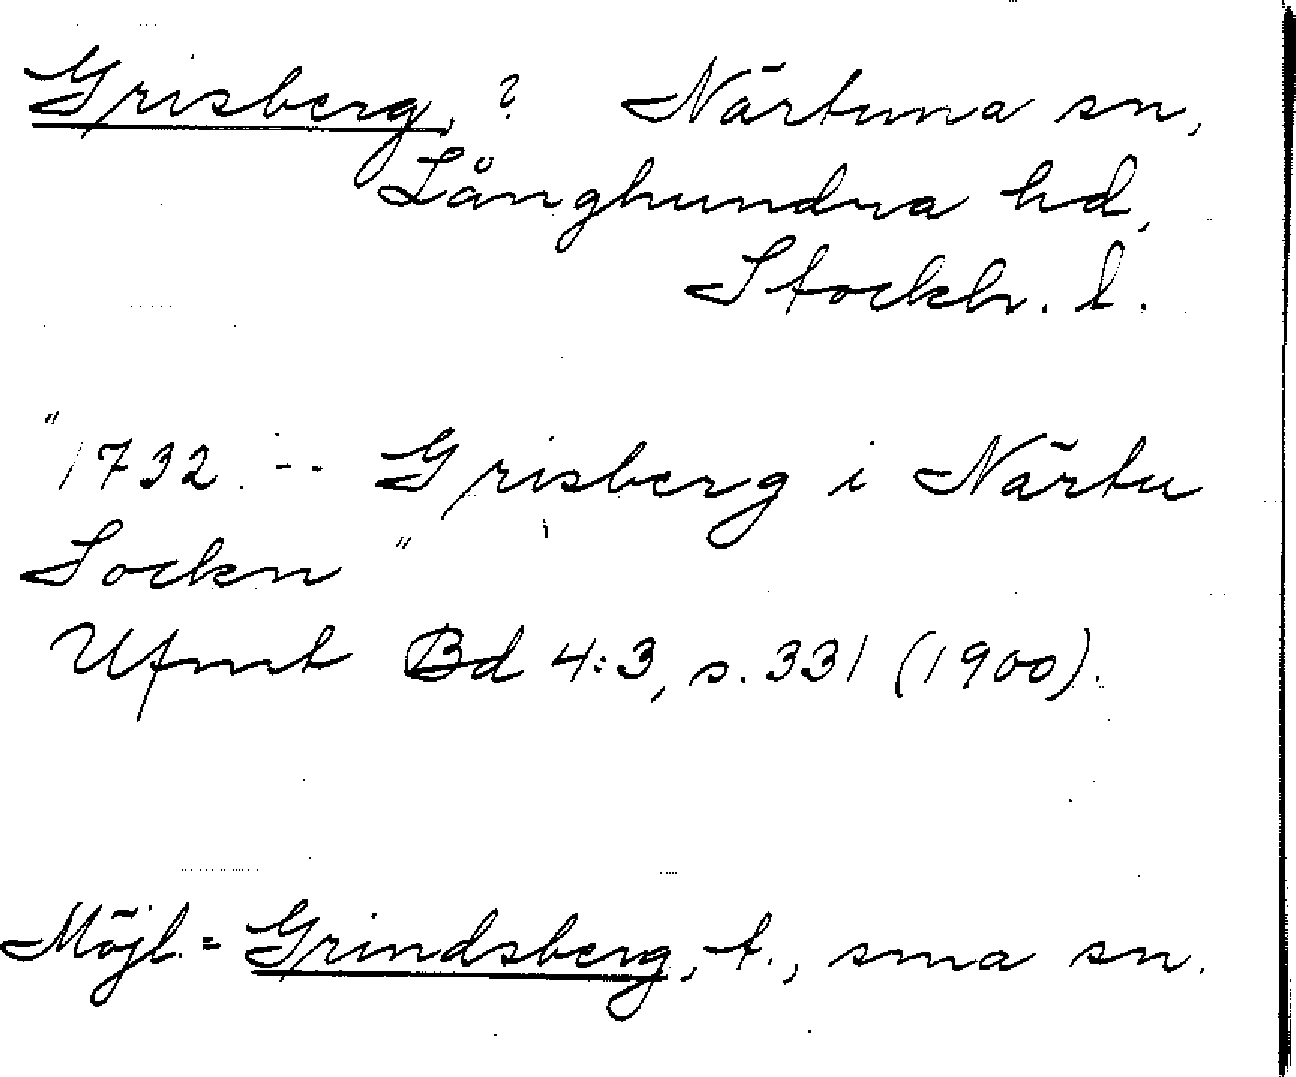 Grisberg, ? Närtuna sn,
Långhundra hd,
Stockh. l.
"1732. -- Grisberg i Närtu
Sockn"
Ufmt Bd 4:3, s. 331 (1900).
Möjl. = Grindsberg, t., sma sn.